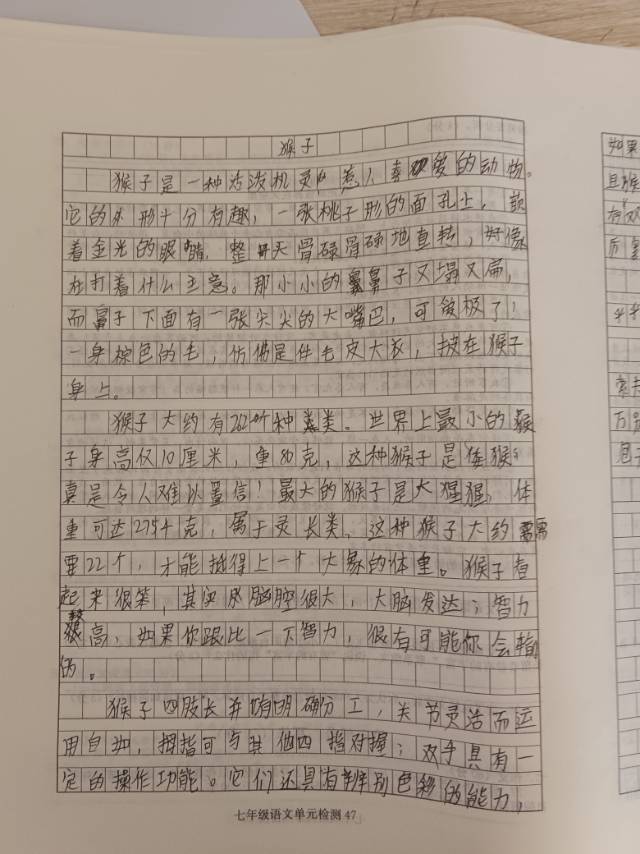 猴子
猴子是一种活泼机灵,惹人喜爱的动物。
它的外形十分有趣，一张桃子形的面孔上，嵌
着金光的眼睛，整天骨碌骨碌地直转，好像
在打着什么主意。那小小的鼻子又塌又扁，
而鼻子下面有一张尖尖的大嘴巴，可爱极了！
一身棕色的毛，仿佛是件毛皮大衣，披在猴子
身上。
猴子大约有262个种类。世界上最小的猴
子身高仅10厘米，重80克，这种猴子是倭猴，
真是令人难以置信！最大的猴子是大猩猩，体
重可达275千克，属于灵长类，这种猴子大约需
要22个，才能抵得上一个大象的体重。猴子看
起来很笨，其实脑腔很大，大脑发达；智力
较高，如果你跟比一下智力，很有可能你会输
的。
猴子四肢长并有明确分工，关节灵活而运
用自如，拇指可与其他四指对握；双手具有一
定的操作功能。它们还具有辨别色彩的能力，
七年级语文单元检测 47
如果
且猴
万